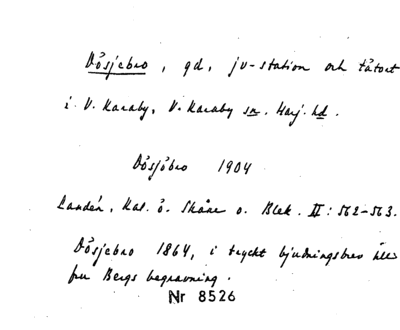 Dösjebro, gd, jv-station och tätort
i V. Karaby, V. Karaby sn. Harj. hd.
Dösjöbro 1904
Landén, Kal. ö. Skåne o. Blek. II: 562-563.
Dösjebro 1864, i tryckt bjudningsbrev till
fru Bergs begravning.
Nr 8526